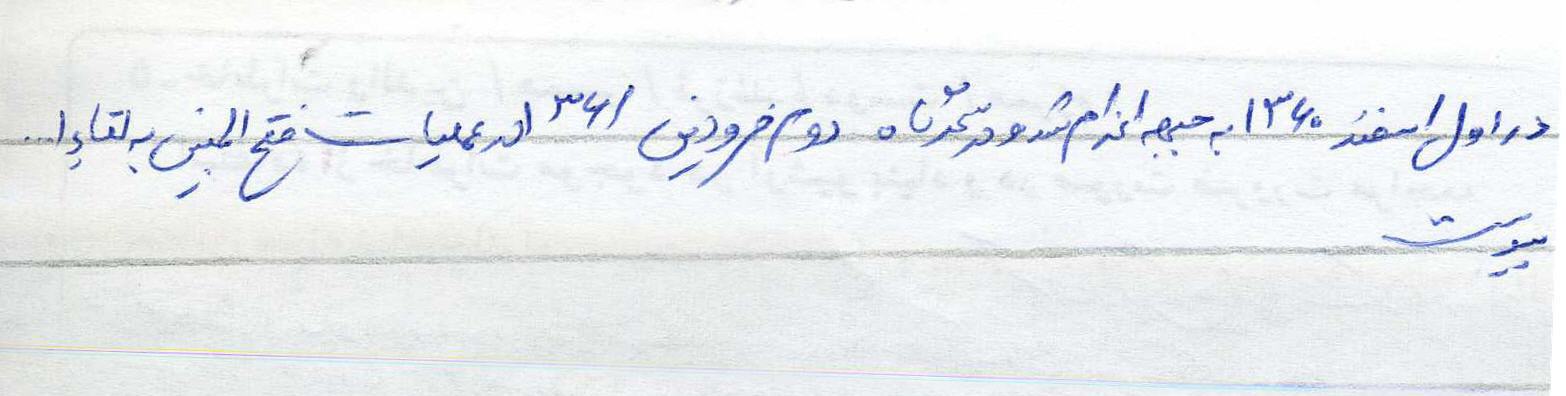 در اول اسفند ۱۳۶۰ به جبهه اعزام شد و در سحرگاه دوم فروردین ۱۳۶۱ در عملیات فتح المبین به لقاء ا...
پیوست